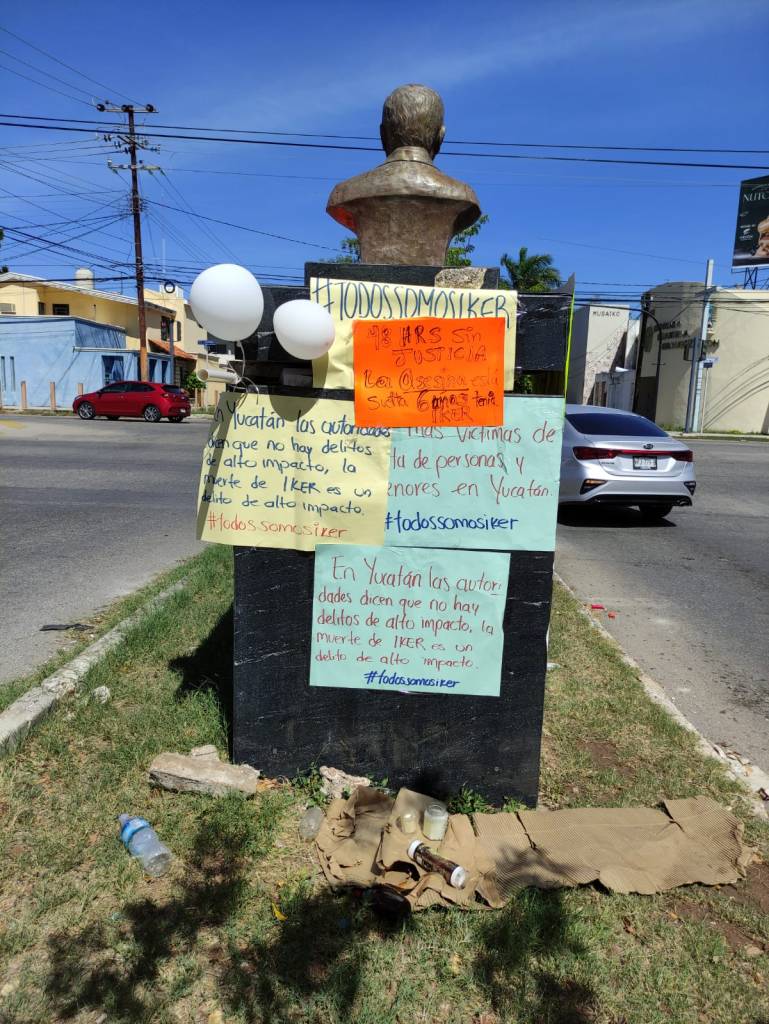 #TODOSSOMOSIKER
48 HRS Sin
JUSTICIA
La Asesina está
Suelta 6 años tenia
IKER
En Yucatán las autoridades
dicen que no hay delitos
de alto impacto, la
muerte de IKER es un
delito de alto impacto.
#todossomosiker
mas victimas de
ta de personas y
enores en Yucatán.
#todossomosiker
En Yucatán las autori
dades dicen que no hay
delitos de alto impacto, la
muerte de IKER es un
delito de alto impacto.
#todossomosiker
MUSAIKO
NUTO